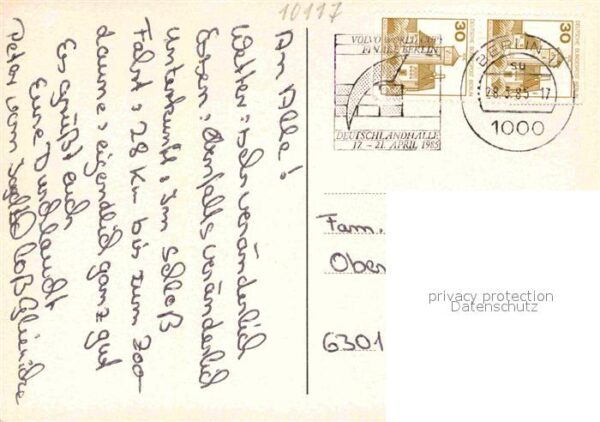 10117
An Alle!
Wetter: sehr veränderlich
Essen: ebenfalls veränderlich
Unterkunft: Im Schloß
Fahrt: 28 Km bis zum Zoo
Laune: eigendlich ganz gut
Es grüßt euch
Eure Durchlaucht
Peter vom
VOLVO WORLD CUP
FINALE BERLIN
DEUTSCHLANDHALLE
17. - 21. APRIL 1985
30
30
DEUTSCHE BUNDESPOST BERLIN
BERLIN 11
28.3.85-17
1000
Fam.
Ober
6301
privacy protection
Datenschutz